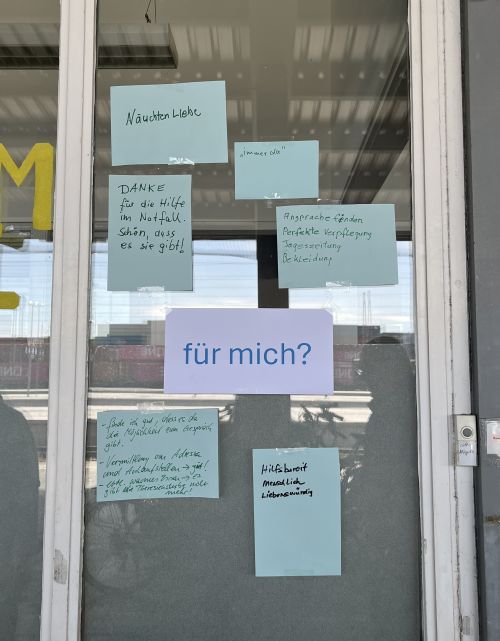 Näuchtenliebe
„Immer da"
DANKE
für die Hilfe
im Notfall.
Schön, dass
es sie gibt!
Ansprache finden
Perfekte Verpflegung
Tageszeitung
Bekleidung
M
für mich?
- finde ich gut, dass es da
die Möglichkeit zum Gespräch
gibt.
- Vermittlung von Adressen
und Anlaufstellen → gut!
warmes Essen → es
gibt
mehr!
Hilfsbereit
Menschlich
Liebenswürdig